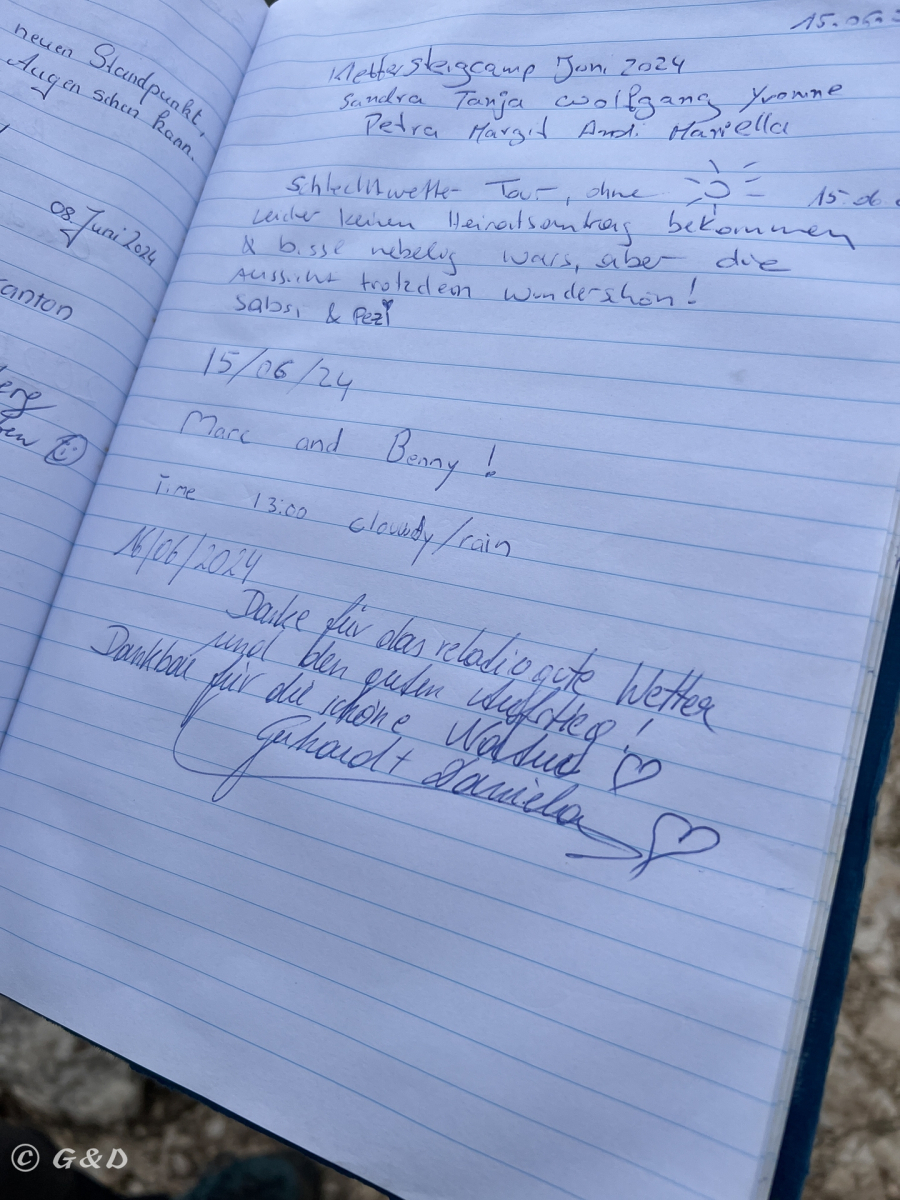 neuen Standpunkt,
Augen sehen kann.
08. Juni 2024
anton
erg
en
15.06.
Klettersteigcamp Juni 2024
Sandra Tanja Wolfgang Yvonne
Petra Margit Andi Mariella
Schlechtwetter Tour, ohne 15.06.
Leider keinen Heiratsantrag bekommen
& bisse nebelig wars, aber die
Aussicht trotzdem wunderschön!
Sabsi & Pezi
15/06/24
Marc and Benny!
Time 13:00 cloudy/rain
16/06/2024
Danke für das relativ gute Wetter
und den guten Aufstieg!
Dankbar für die schöne Natur
Gerhard + Daniela
© G&D